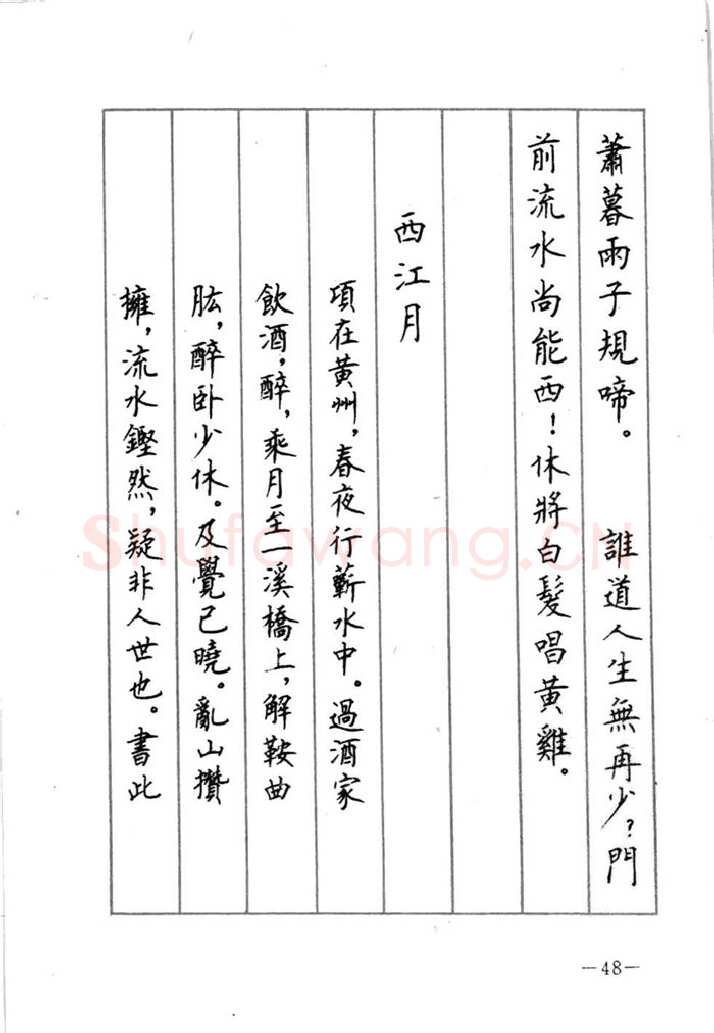 蕭暮雨子規啼。 誰道人生無再少？門
前流水尚能西！休將白髮唱黃雞。
西江月
項在黃州，春夜行蘄水中。過酒家
飲酒，醉，乘月至一溪橋上，解鞍曲
肱，醉卧少休。及覺已曉。亂山攢
擁，流水鏗然，疑非人世也。書此
Shufawang.CN
—48—